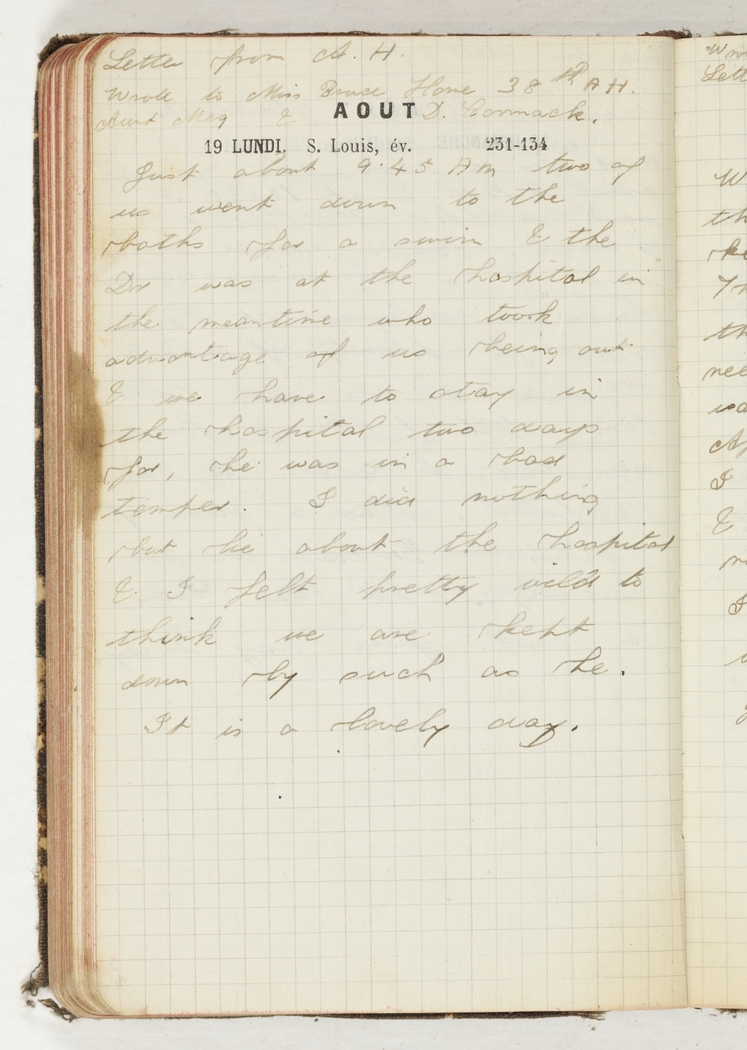 Letter from A. H.
Wrote to Miss Bruce Howe 38th A H.
Aunt Meg & D. Cormack.
AOUT
19 LUNDI. S. Louis, év. 231-134
Just about 9.45 AM two of
us went down to the
baths for a swim & the
Dr was at the hospital in
the meantime who took
advantage of us being out
& we have to stay in
the hospital two days
for, he was in a bad
temper. I did nothing
but lie about the hospital
& I felt pretty wild to
think we are kept
down by such as he.
It is a lovely day.
W
th
Tr
th
nee
wa
I
&
I